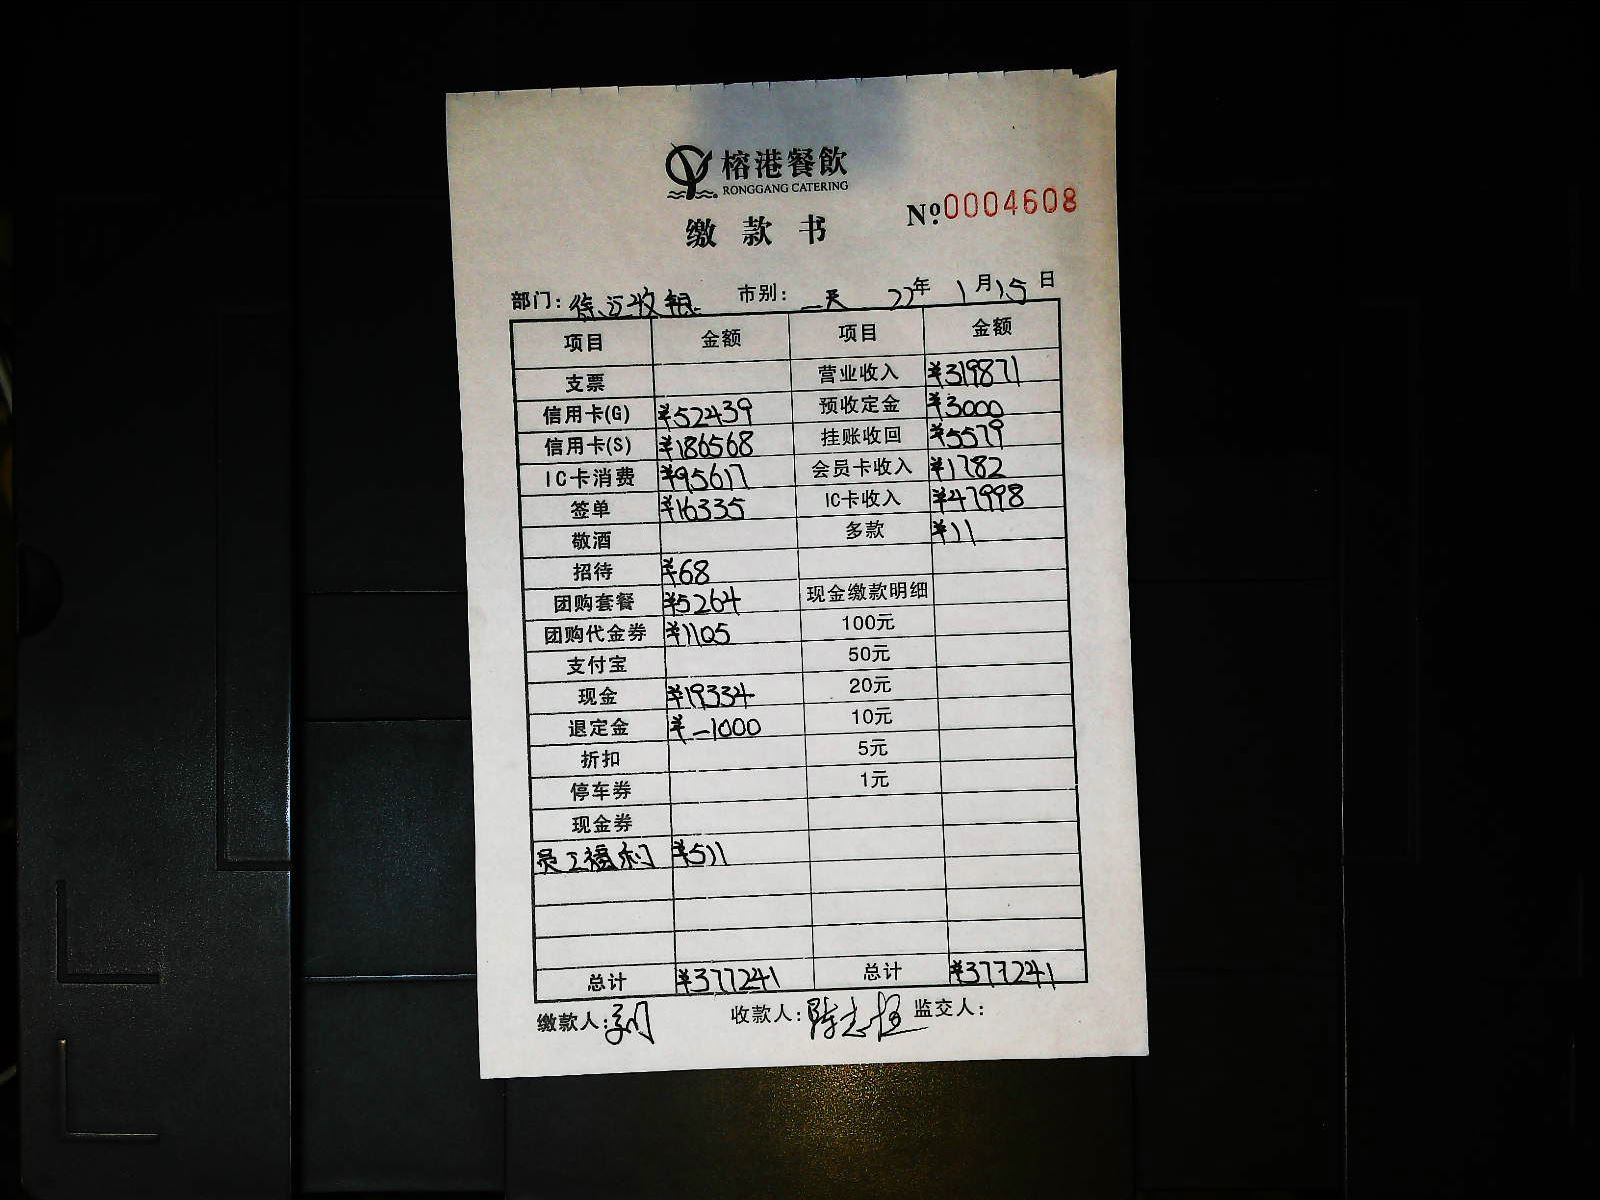 榕港餐飲
RONGGANG CATERING
缴款书 Nº 0004608
部门: 徐汇收银 市别: 天 22年 1月15日
项目 金额 项目 金额
支票 营业收入 ¥319871
信用卡(G) ¥52439 预收定金 ¥3000
信用卡(S) ¥186568 挂账收回 ¥5579
IC卡消费 ¥95617 会员卡收入 ¥1782
签单 ¥16335 IC卡收入 ¥47998
敬酒 多款 ¥11
招待 ¥68
团购套餐 ¥5264 现金缴款明细
团购代金券 ¥1105 100元
支付宝 50元
现金 ¥19334 20元
退定金 ¥-1000 10元
折扣 5元
停车券 1元
现金券
员工福利 ¥511
总计 ¥377241 总计 ¥377241
缴款人: 收款人: 陈志 监交人: